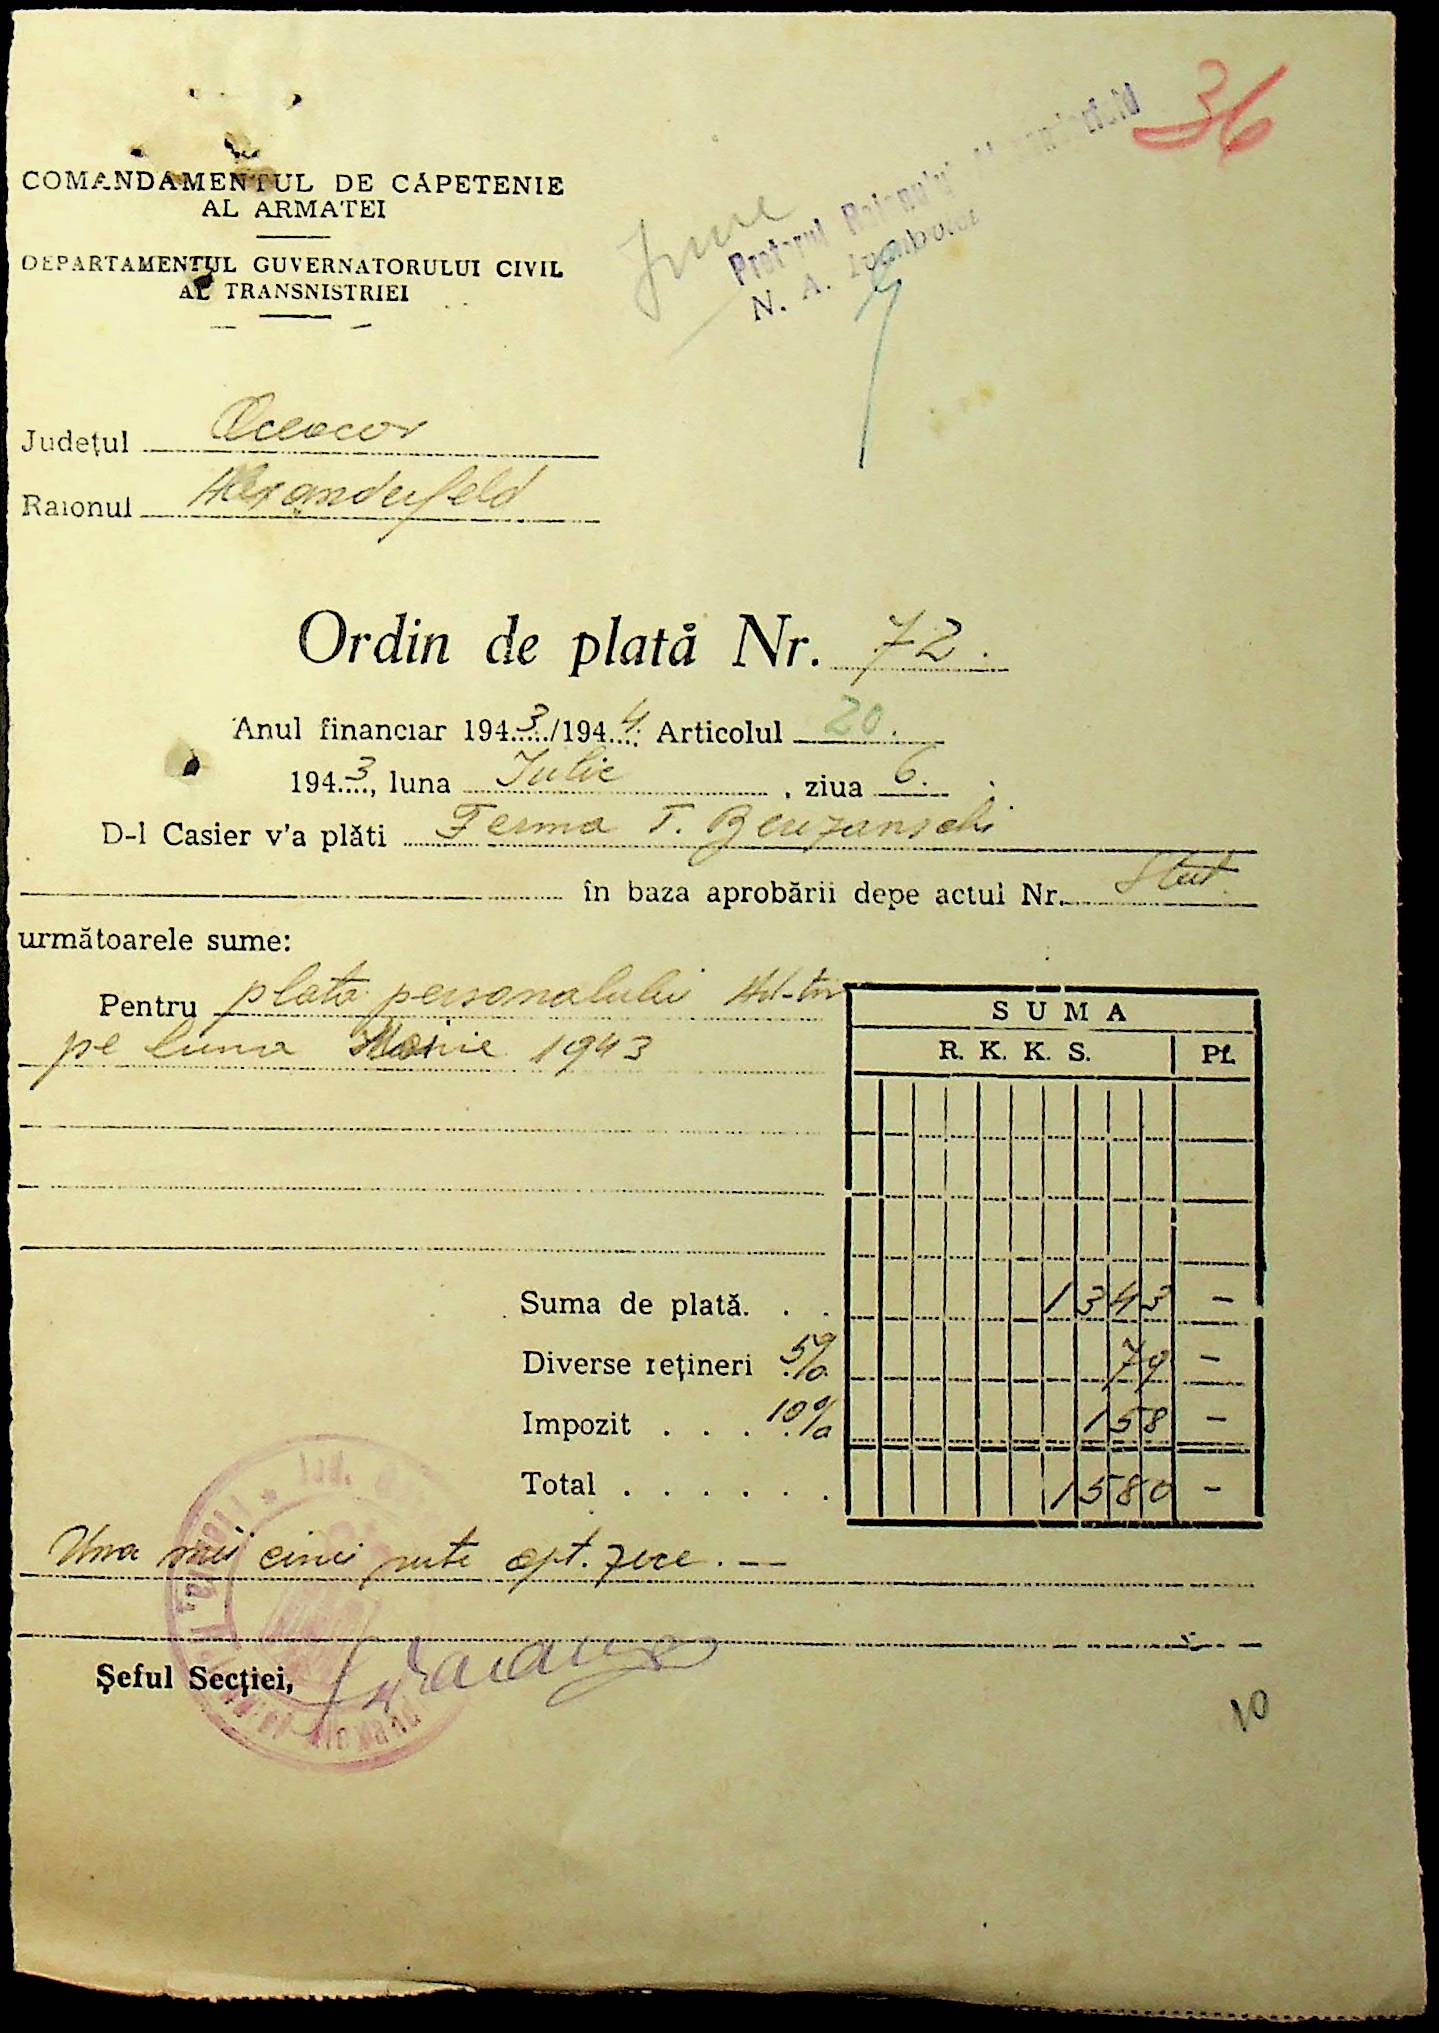 36
COMANDAMENTUL DE CAPETENIE
AL ARMATEI
DEPARTAMENTUL GUVERNATORULUI CIVIL
AL TRANSNISTRIEI
Pretorul Raionului Alexanderfeld
N. A.
Județul Oceacov
Raionul Alexanderfeld
Ordin de plată Nr. 72.
Anul financiar 1943/1944. Articolul 20.
1943, luna Iulie, ziua 6.
D-l Casier v'a plăti Ferma T. Berezanschi
în baza aprobării depe actul Nr. Stat.
următoarele sume:
Pentru plata personalului Ad-tiv
pe luna Iunie 1943
SUMA
R. K. K. S. Pf.
Suma de plată. . . 1343 –
Diverse rețineri 5% 79 –
Impozit . . . 10% 158 –
Total . . . . . . 1580 –
Una mii cinci sute opt.zece. —
Șeful Secției,
10